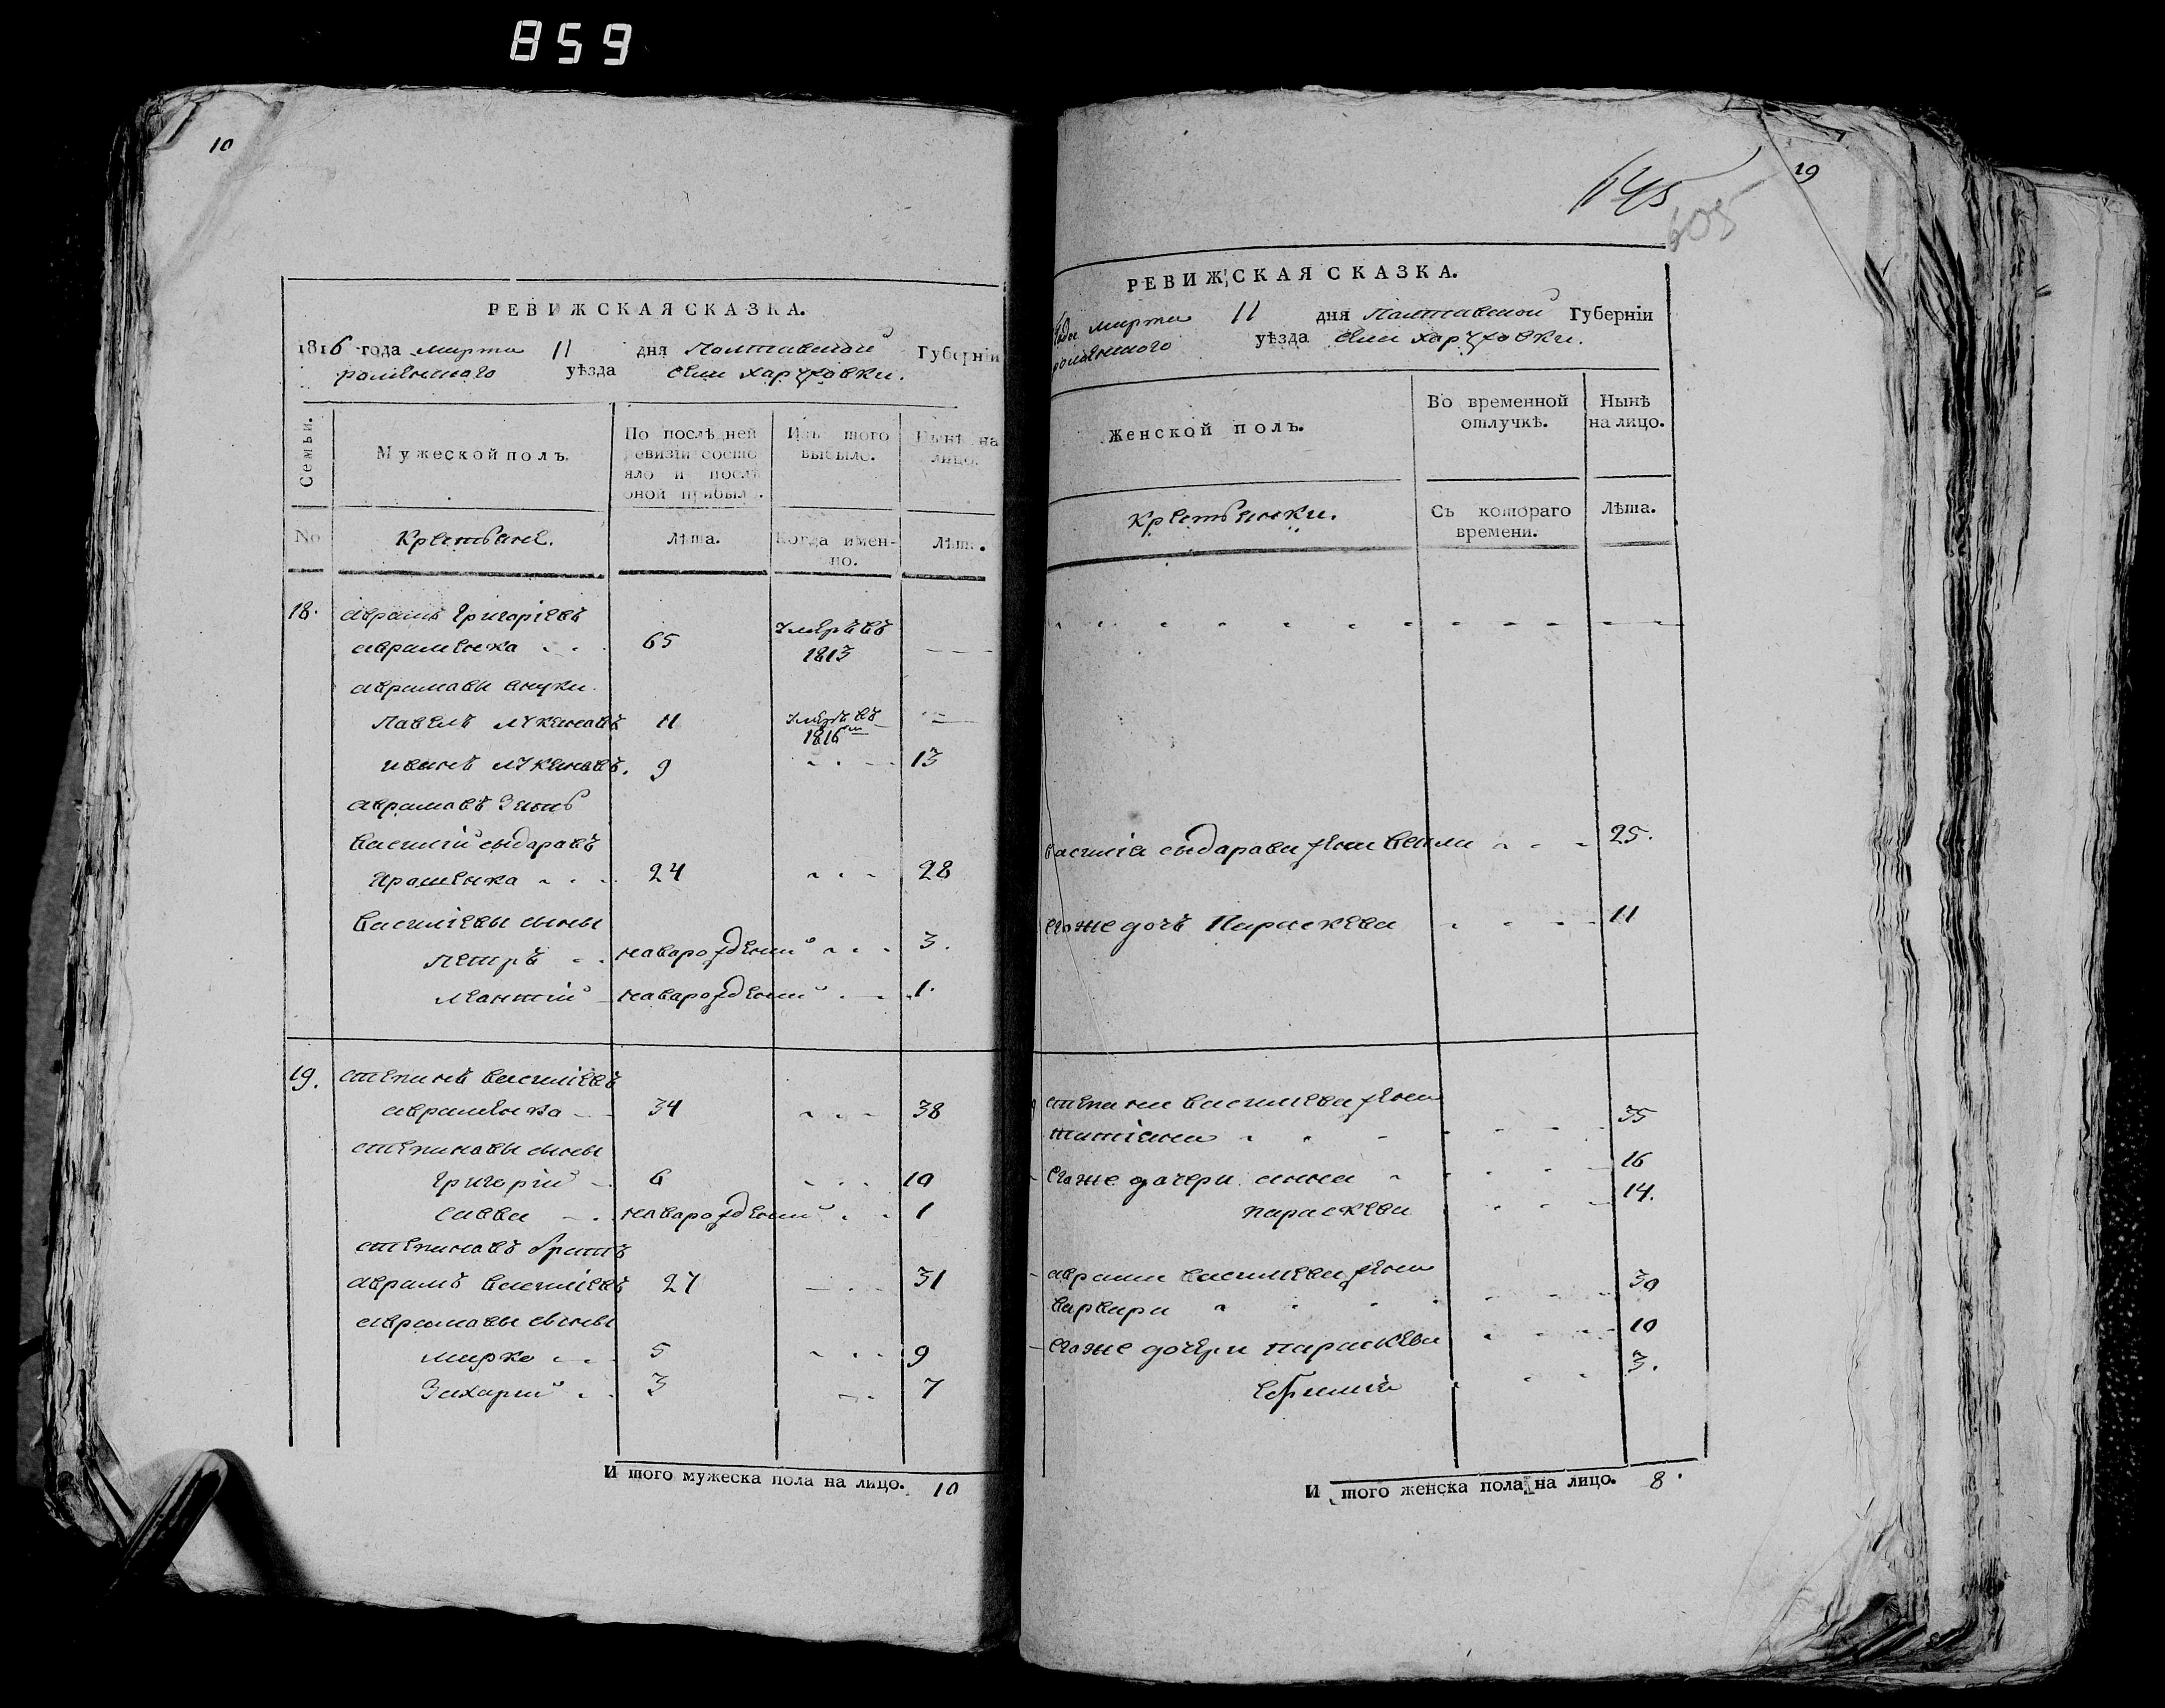 859
10
РЕВИЖСКАЯ СКАЗКА.
1816 года марта 11 дня Полтавской Губерніи
роменского уѣзда села харковки.
Семьи.
Мужеской полъ.
По послѣдней ревизіи состояло и послѣ оной прибыло.
Изъ того выбыло.
Нынѣ на лицо.
No
Крестьяне.
Лѣта.
Когда именно.
Лѣта.
18. аврамъ Григоріевъ
авраменка 65 умеръ въ 1813
аврамовы внуки
Павелъ 11 умеръ въ 1816
иванъ 9 13
аврамовъ Зять
Василій сидоровъ
24 28
Василіевы сыны
Петръ новорожденій 3.
Леонтій новорожденій 1.
19. степанъ василіевъ
авраменка 34 38
степановы сыны
Григорій 6 10
савва новорожденій 1
степановъ братъ
аврамъ василіевъ 27 31
аврамовы сыны
марко 5 9
Захарий 3 7
И того мужеска пола на лицо. 10
19
645
605
РЕВИЖСКАЯ СКАЗКА.
года марта 11 дня Полтавской Губерніи
роменского уѣзда села харковки.
Женской полъ.
Во временной отлучкѣ.
Нынѣ на лицо.
Крестьянки.
Съ котораго времени.
Лѣта.
василія сидорова жена 25.
егоже дочь Параскева 11
степана василиева жена
татіана 35
егоже дочери анна 16
параскева 14.
аврама василиева жена
варвара 30
егоже дочери параскева 10
3.
И того женска пола на лицо. 8.